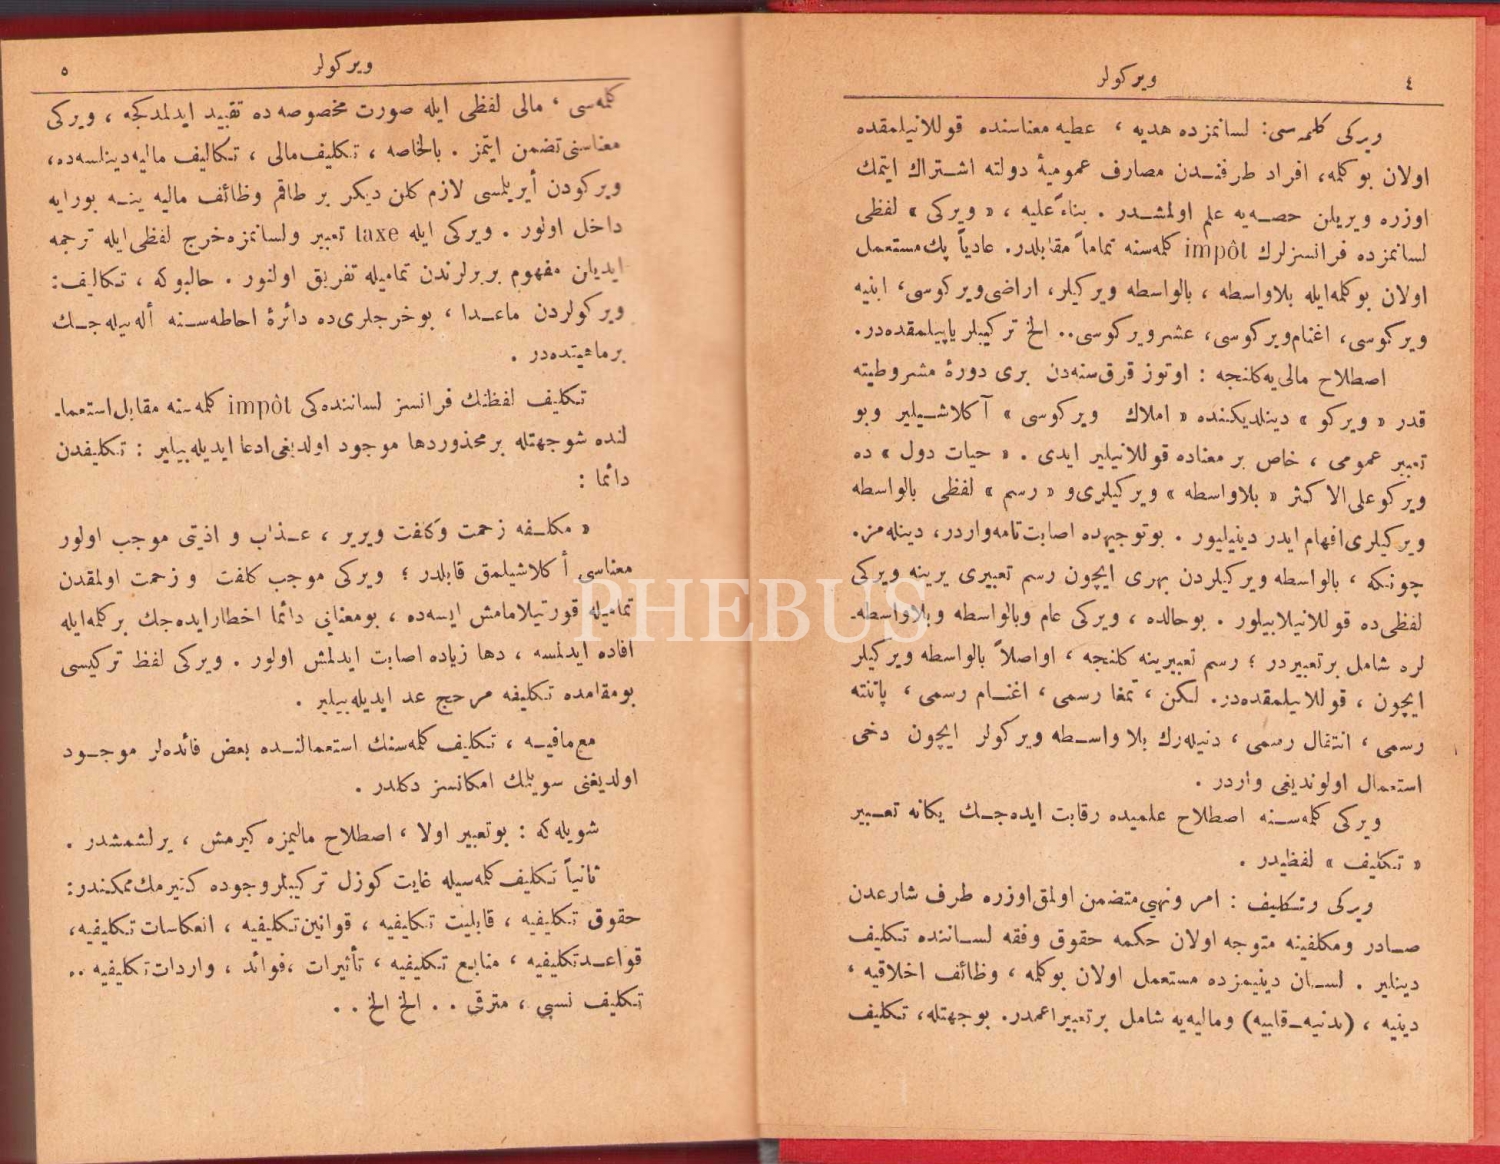 ٤
ویركولر
ویركی كلمه‌سی: لسانمزده هدیه ، عطیه معناسنده قوللانیلمقده
اولان بوكلمه، افراد طرفندن مصارف عمومیهٔ دولته اشتراك ایتمك
اوزره ویریلن حصه‌یه علم اولمشدر . بناءً علیه ، « ویركی » لفظی
لسانمزده فرانسزلرك impôt كلمه‌سنه تماماً مقابلدر. عادیاً پك مستعمل
اولان بوكلمه‌ایله بلاواسطه ، بالواسطه ویركیلر، اراضی ویركوسی، ابنیه
ویركوسی، اغنام ویركوسی، عشر ویركوسی.. الخ تركیبلر یاپیلمقده‌در.
اصطلاح مالی‌یه كلنجه : اوتوز قرق سنه‌دن بری دورهٔ مشروطیته
قدر « ویركو » دینلدیكنده « املاك ویركوسی » آكلاشیلیر وبو
تعبیر عمومی ، خاص بر معناده قوللانیلیر ایدی . « حیات دول » ده
ویركو علی الاكثر « بلاواسطه » ویركیلری و « رسم » لفظی بالواسطه
ویركیلری افهام ایدر دینیلیور . بوتوجیهده اصابت تامه واردر، دینله‌مز.
چونكه ، بالواسطه ویركیلردن بهری ایچون رسم تعبیری یرینه ویركی
لفظی‌ده قوللانیلابیلور . بوحالده ، ویركی عام وبالواسطه وبلاواسطه‌ـ
لره شامل برتعبیردر ؛ رسم تعبیرینه كلنجه ، اواصلاً بالواسطه ویركیلر
ایچون ، قوللانیلمقده‌در. لكن ، تمغا رسمی ، اغنام رسمی ، پاتنته
رسمی ، انتقال رسمی ، دنیله‌رك بلاواسطه ویركولر ایچون دخی
استعمال اولوندیغی واردر .
ویركی كلمه‌سنه اصطلاح علمیده رقابت ایده‌جك یكانه تعبیر
« تكلیف » لفظیدر .
ویركی وتكلیف : امر ونهیی متضمن اولمق اوزره طرف شارعدن
صادر ومكلفینه متوجه اولان حكمه حقوق وفقه لساننده تكلیف
دینلیر . لسان دینیمزده مستعمل اولان بوكلمه ، وظائف اخلاقیه ،
دینیه ، (بدنیه‌ـ‌قلبیه) ومالیه‌یه شامل برتعبیراعمدر. بوجهتله، تكلیف
ویركولر
٥
كلمه‌سی ، مالی لفظی ایله صورت مخصوصه‌ده تقیید ایدلمدكجه ، ویركی
معناسنی تضمن ایتمز . بالخاصه ، تكلیف مالی ، تكالیف مالیه دینلسه‌ده،
ویركودن أیریلمسی لازم كلن دیكر بر طاقم وظائف مالیه ینه بورایه
داخل اولور . ویركی ایله taxe تعبیر ولسانمزه خرج لفظی ایله ترجمه
ایدیلن مفهوم بربرلرندن تمامیله تفریق اولنور . حالبوكه ، تكالیف:
ویركولردن ماعدا ، بوخرجلری‌ده دائرهٔ احاطه‌سنه أله‌بیله‌جك
برماهیتده‌در .
تكلیف لفظنك فرانسز لساننده‌كی impôt كلمه‌سنه مقابل استعما‌ـ
لنده شوجهتله برمحذور دها موجود اولدیغی ادعا ایدیله‌بیلیر : تكلیفدن
دائما :
« مكلفه زحمت وكلفت ویریر ، عذاب و اذیتی موجب اولور
معناسی أكلاشیلمق قابلدر ؛ ویركی موجب كلفت و زحمت اولمقدن
تمامیله قورتیلامامش ایسه‌ده ، بومعنایی دائما اخطار ایده‌جك بركلمه‌ایله
افاده ایدلمسه ، دها زیاده اصابت ایدلمش اولور . ویركی لفظ تركیسی
بومقامده تكلیفه مرحج عد ایدیله‌بیلیر .
مع مافیه ، تكلیف كلمه‌سنك استعمالنده بعض فائده‌لر موجود
اولدیغنی سویلمك امكانسز دكلدر .
شویله‌كه : بوتعبیر اولا ، اصطلاح مالیمزه كیرمش ، یرلشمشدر .
ثانیاً تكلیف كلمه‌سیله غایت كوزل تركیبلر وجوده كتیرمك ممكندر:
حقوق تكلیفیه ، قابلیت تكلیفیه ، قوانین تكلیفیه ، انعكاسات تكلیفیه،
قواعد تكلیفیه ، منابع تكلیفیه ، تأثیرات ، فوائد ، واردات تكلیفیه ..
تكلیف نسبی ، مترقی . . الخ الخ . .
PHEBUS